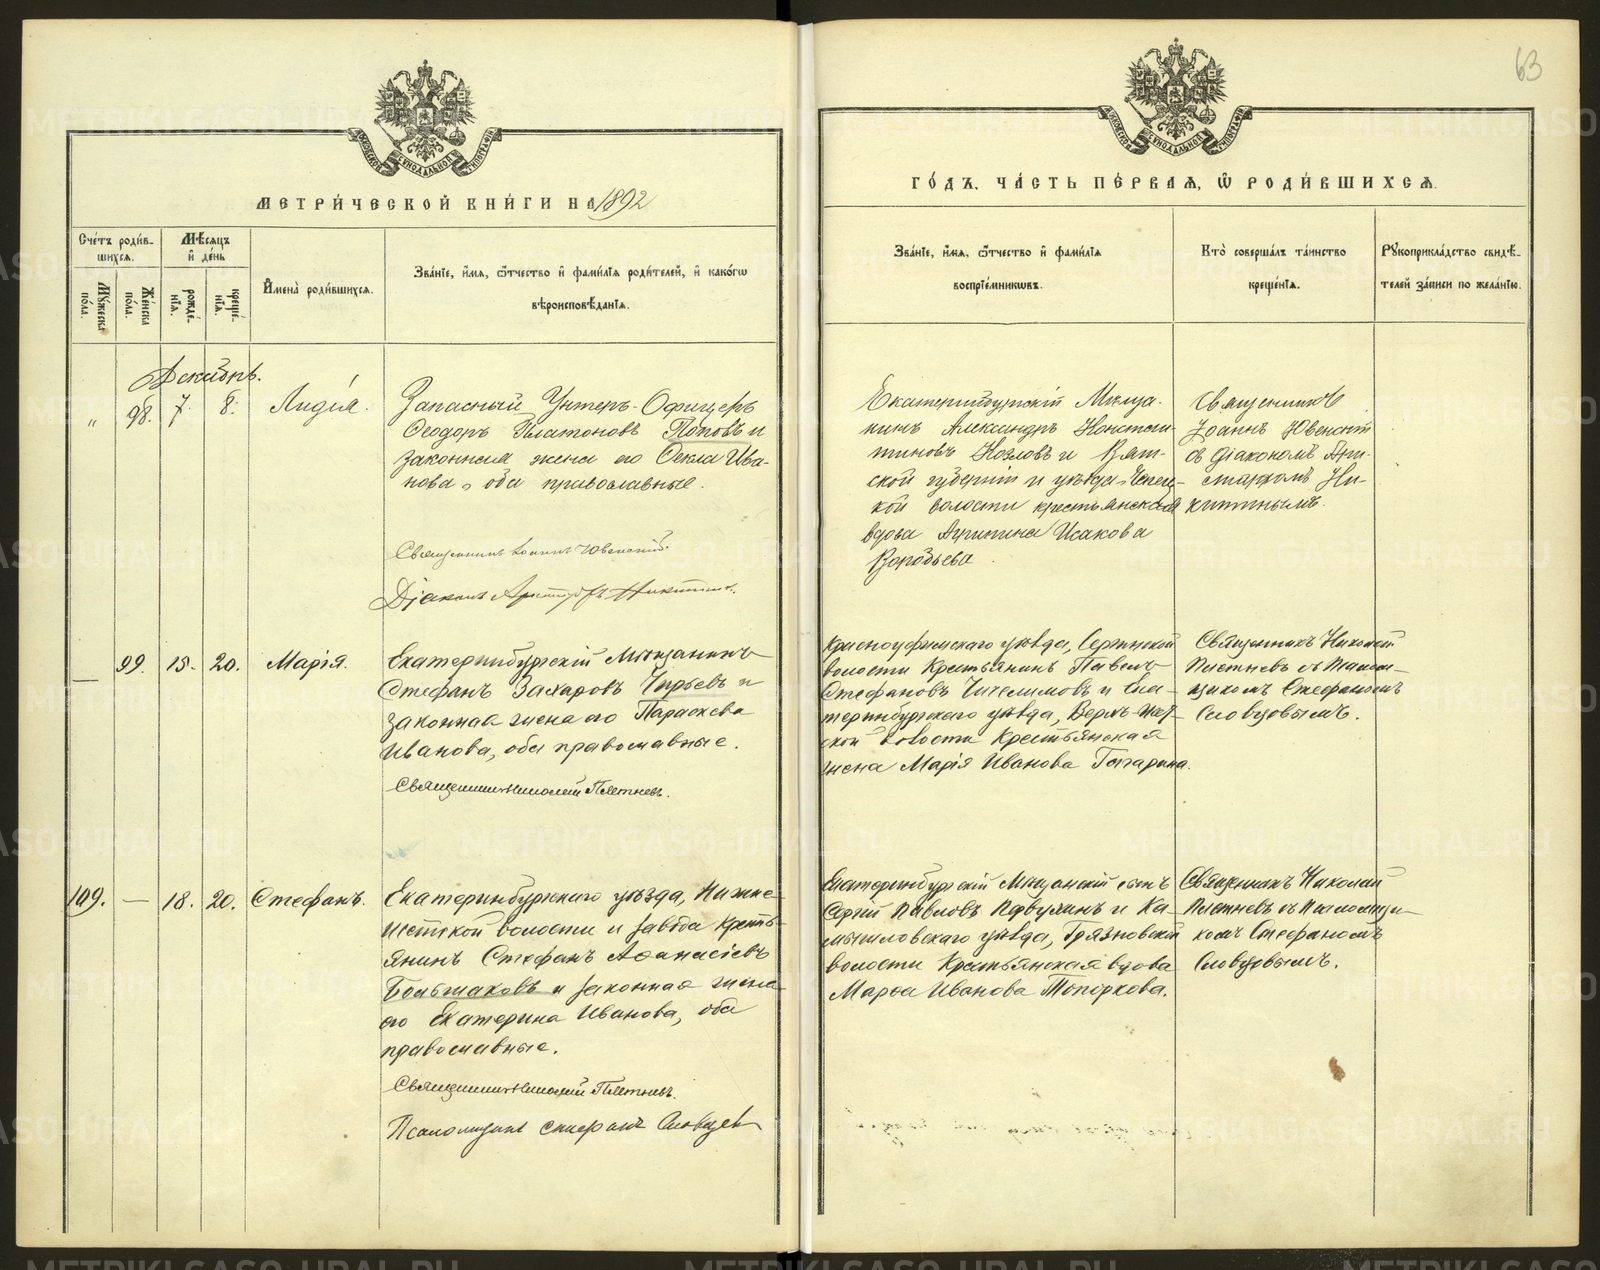 63
МЕТРИ́ЧЕСКОЙ КНИ́ГИ НА 1892
ГО́ДЪ, ЧА́СТЬ ПЕ́РВАЯ, Ѽ РОДИ́ВШИХСЯ.
Сче́тъ роди́в-
шихся.
Мꙋ́жеска по́ла.
Же́нска по́ла.
Мѣ́сяцъ и҆ де́нь
рожде́-
нїя.
креще́-
нїя.
И҆мена̀ роди́вшихся.
Зва́нїе, и҆́мя, ѻ҆́тчество и҆ фами́лїя роди́телей, и҆ како́гѡ
вѣроисповѣ́данїя.
Зва́нїе, и҆́мя, ѻ҆́тчество и҆ фами́лїя
воспрїе́мникѡвъ.
Кто̀ соверша́лъ та́инство
креще́нїя.
Рꙋкоприкла́дство свидѣ́-
телей за́писи по жела́нїю.
Декабрь.
" 98. 7. 8. Лидія.
Запасный Унтеръ-Офицеръ
Ѳеодоръ Платоновъ Поповъ и
законная жена его Ѳекла Ива-
нова, оба православные.
Священникъ Іоаннъ Ювенскій.
Діаконъ Аристархъ Никитинъ.
Екатеринбургскій Мѣща-
нинъ Александръ Констан-
тиновъ Козловъ и Вят-
ской губерніи и уѣзда Чепец-
кой волости крестьянская
вдова Агрипина Исакова
Воробьева
Священникъ
Іоаннъ Ювенскій
съ діакономъ Ари-
стархомъ Ни-
китинымъ.
— 99. 15. 20. Марія.
Екатеринбургскій Мѣщанинъ
Стефанъ Захаровъ Чирьевъ и
законная жена его Параскева
Иванова, оба православные.
Священникъ Николай Плетневъ.
Красноуфимскаго уѣзда, Сергинской
волости Крестьянинъ Павелъ
Стефановъ и Ека-
теринбургскаго уѣзда, Верхъ-Исет-
ской волости Крестьянская
жена Марія Иванова Гагарина.
Священникъ Николай
Плетневъ съ Псалом-
щикомъ Стефаномъ
Словцовымъ.
109. — 18. 20. Стефанъ.
Екатеринбургскаго уѣзда, Нижне-
Исетской волости и завода Кресть-
янинъ Стефанъ Аѳанасіевъ
Большаковъ и законная жена
его Екатерина Иванова, оба
православные.
Священникъ Николай Плетневъ.
Псаломщикъ Стефанъ Словцовъ
Екатеринбургскій Мѣщанскій сынъ
Сергій Павловъ Первухинъ и Ка-
мышловскаго уѣзда, Грязновской
волости Крестьянская вдова
Марѳа Иванова Топоркова.
Священникъ Николай
Плетневъ съ Псаломщи-
комъ Стефаномъ
Словцовымъ.